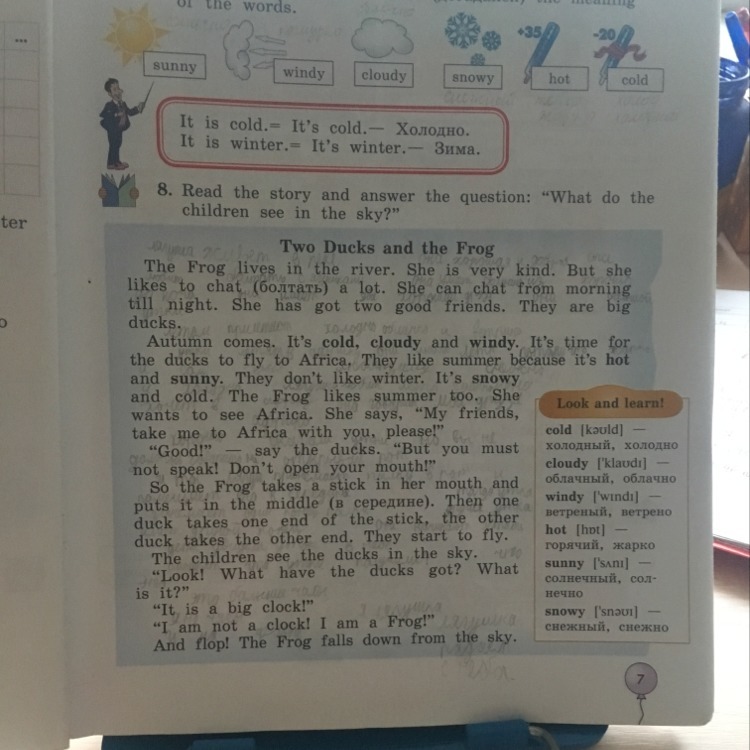 of the words.
the meaning
...
+35
-20
sunny
windy
cloudy
snowy
hot
cold
It is cold.= It's cold.— Холодно.
It is winter.= It's winter.— Зима.
ter
8. Read the story and answer the question: “What do the
children see in the sky?”
Two Ducks and the Frog
The Frog lives in the river. She is very kind. But she
likes to chat (болтать) a lot. She can chat from morning
till night. She has got two good friends. They are big
ducks.
Autumn comes. It's cold, cloudy and windy. It's time for
the ducks to fly to Africa. They like summer because it's hot
and sunny. They don't like winter. It's snowy
and cold. The Frog likes summer too. She
wants to see Africa. She says, “My friends,
take me to Africa with you, please!”
“Good!” — say the ducks. “But you must
not speak! Don't open your mouth!”
So the Frog takes a stick in her mouth and
puts it in the middle (в середине). Then one
duck takes one end of the stick, the other
duck takes the other end. They start to fly.
The children see the ducks in the sky.
“Look! What have the ducks got? What
is it?”
“It is a big clock!”
“I am not a clock! I am a Frog!”
And flop! The Frog falls down from the sky.
Look and learn!
cold [kəʊld] —
холодный, холодно
cloudy ['klaʊdɪ] —
облачный, облачно
windy ['wɪndɪ] —
ветреный, ветрено
hot [hɒt] —
горячий, жарко
sunny ['sʌnɪ] —
солнечный, сол-
нечно
snowy ['snəʊɪ] —
снежный, снежно
7